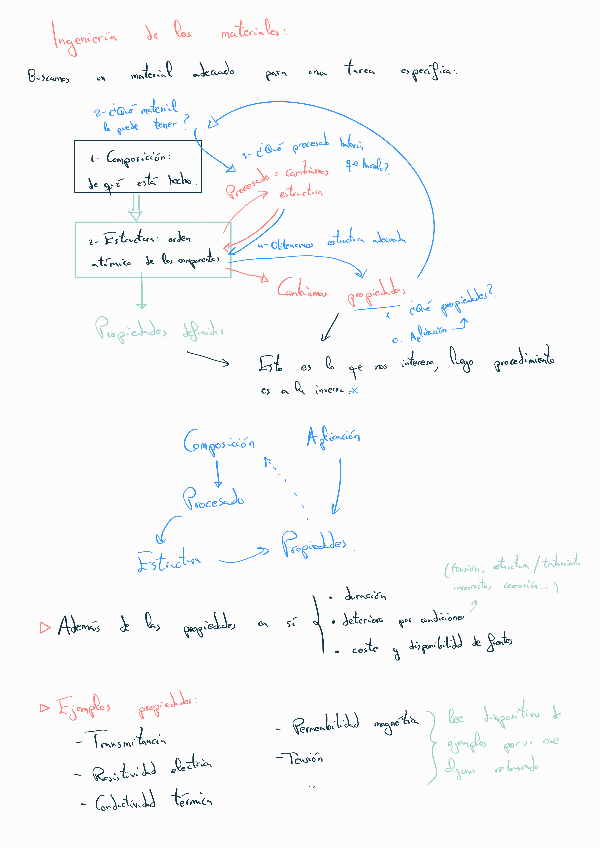 Ingeniería de los materiales:
Buscamos un material adecuado para una tarea específica:
2-¿Qué material
lo puede tener?
1- Composición:
de qué está hecho.
3-¿Qué procesado habría
que hacerle?
Procesado = cambiamos
estructura
2- Estructura: orden
atómico de los componentes
4-Obtenemos estructura adecuada
Cambiamos propiedades
1 ¿Qué propiedades?
0. Aplicación
Propiedades definidas
Esto es lo que nos interesa, luego procedimiento
es a la inversa
Composición
Aplicación
Procesado
Estructura
Propiedades.
(tensión, estructura/tratamiento
incorrectos, corrosión...)
Además de las propiedades en sí
• duración
• deterioro por condiciones
• coste y disponibilidad de fuentes
Ejemplos propiedades:
- Transmitancia
- Resistividad eléctrica
- Conductividad térmica
- Permeabilidad magnética
- Tensión
...
lee diapositiva de
ejemplos por si cae
alguno relacionado